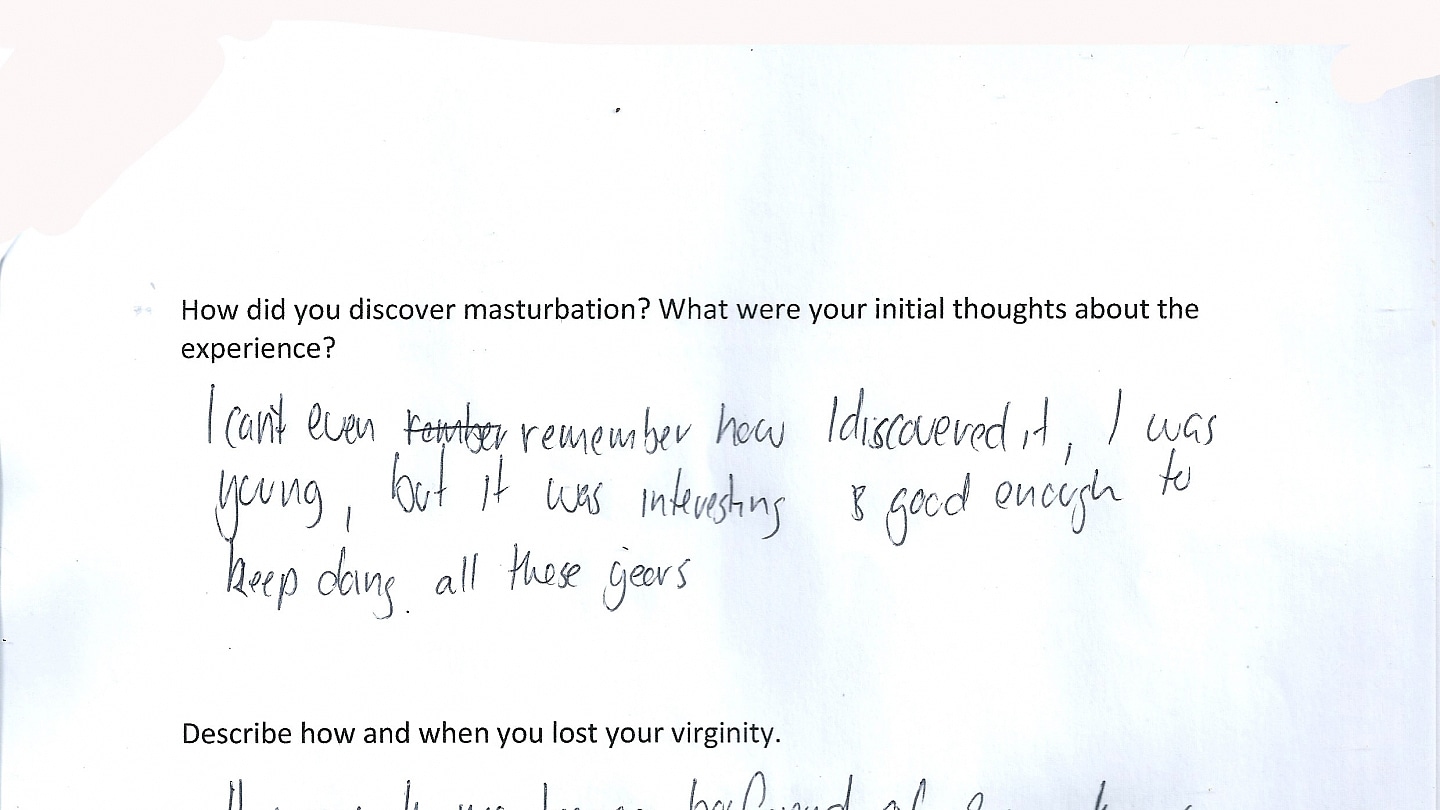 How did you discover masturbation? What were your initial thoughts about the
experience?
I can't even remember how I discovered it, I was
young, but it was interesting & good enough to
keep doing all these years
Describe how and when you lost your virginity.